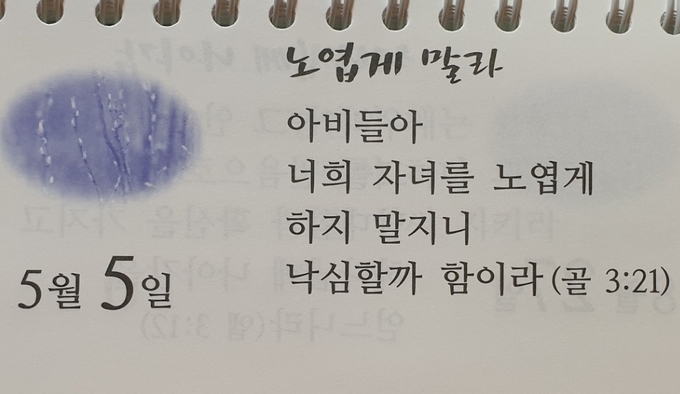 노엽게 말라
아비들아
너희 자녀를 노엽게
하지 말지니
낙심할까 함이라 (골 3:21)
5월 5일